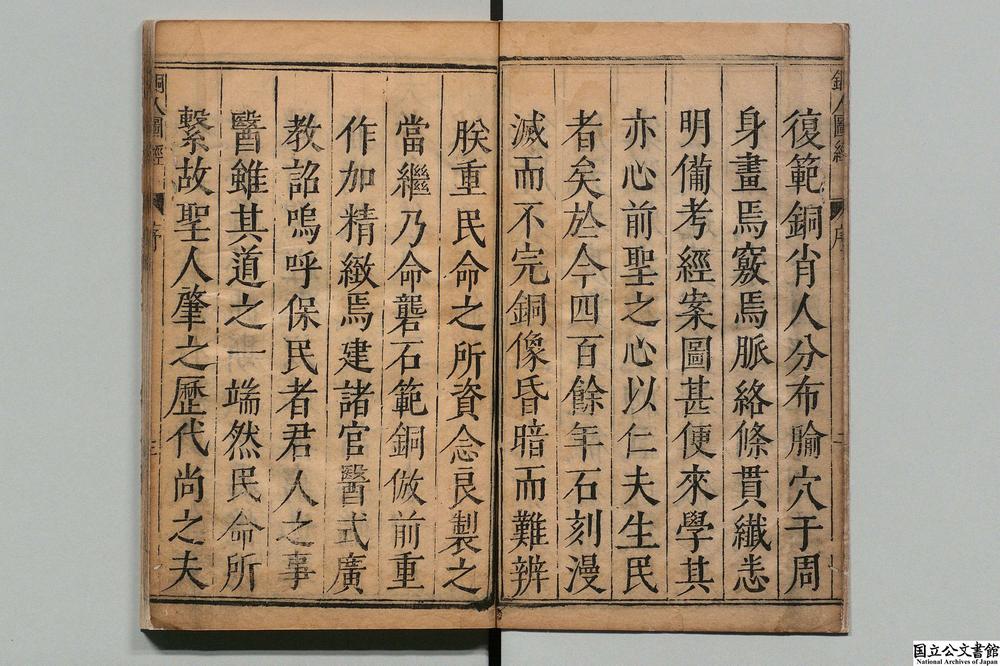 銅人圖經
序
復範銅肖人分布腧穴于周
身畫焉竅焉脈絡條貫纖悉
明備考經案圖甚便來學其
亦心前聖之心以仁夫生民
者矣於今四百餘年石刻漫
滅而不完銅像昏暗而難辨
朕重民命之所資念良製之
當繼乃命礱石範銅倣前重
作加精緻焉建諸官醫式廣
教詔嗚呼保民者君人之事
醫雖其道之一端然民命所
繫故聖人肇之歷代尚之夫
銅人圖經
序
国立公文書館
National Archives of Japan